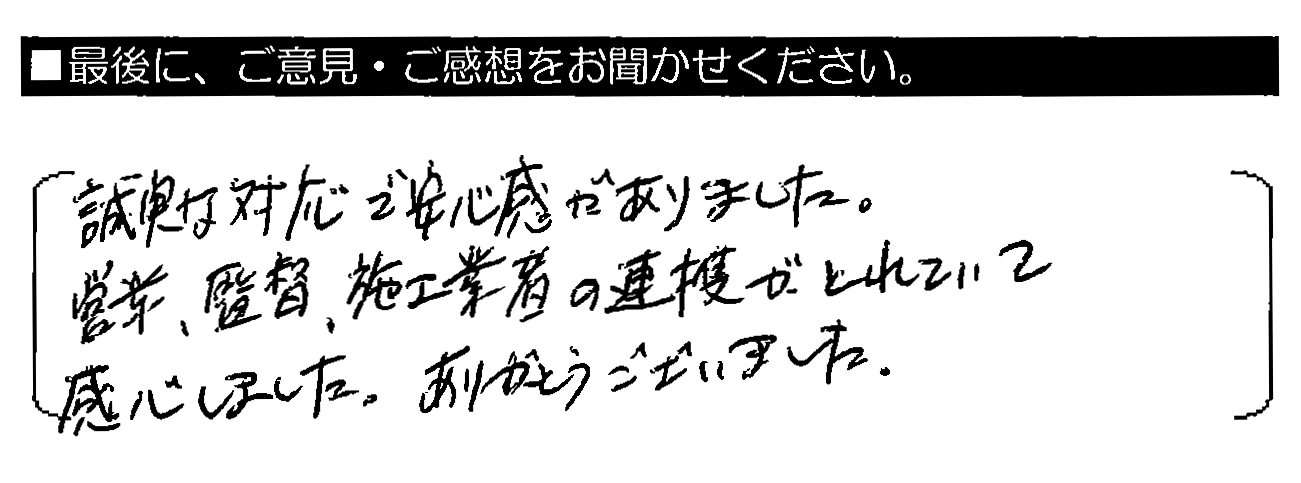 ■最後に、ご意見・ご感想をお聞かせください。
誠実な対応で安心感がありました。
営業、監督、施工業者の連携がとれていて
感心しました。ありがとうございました。